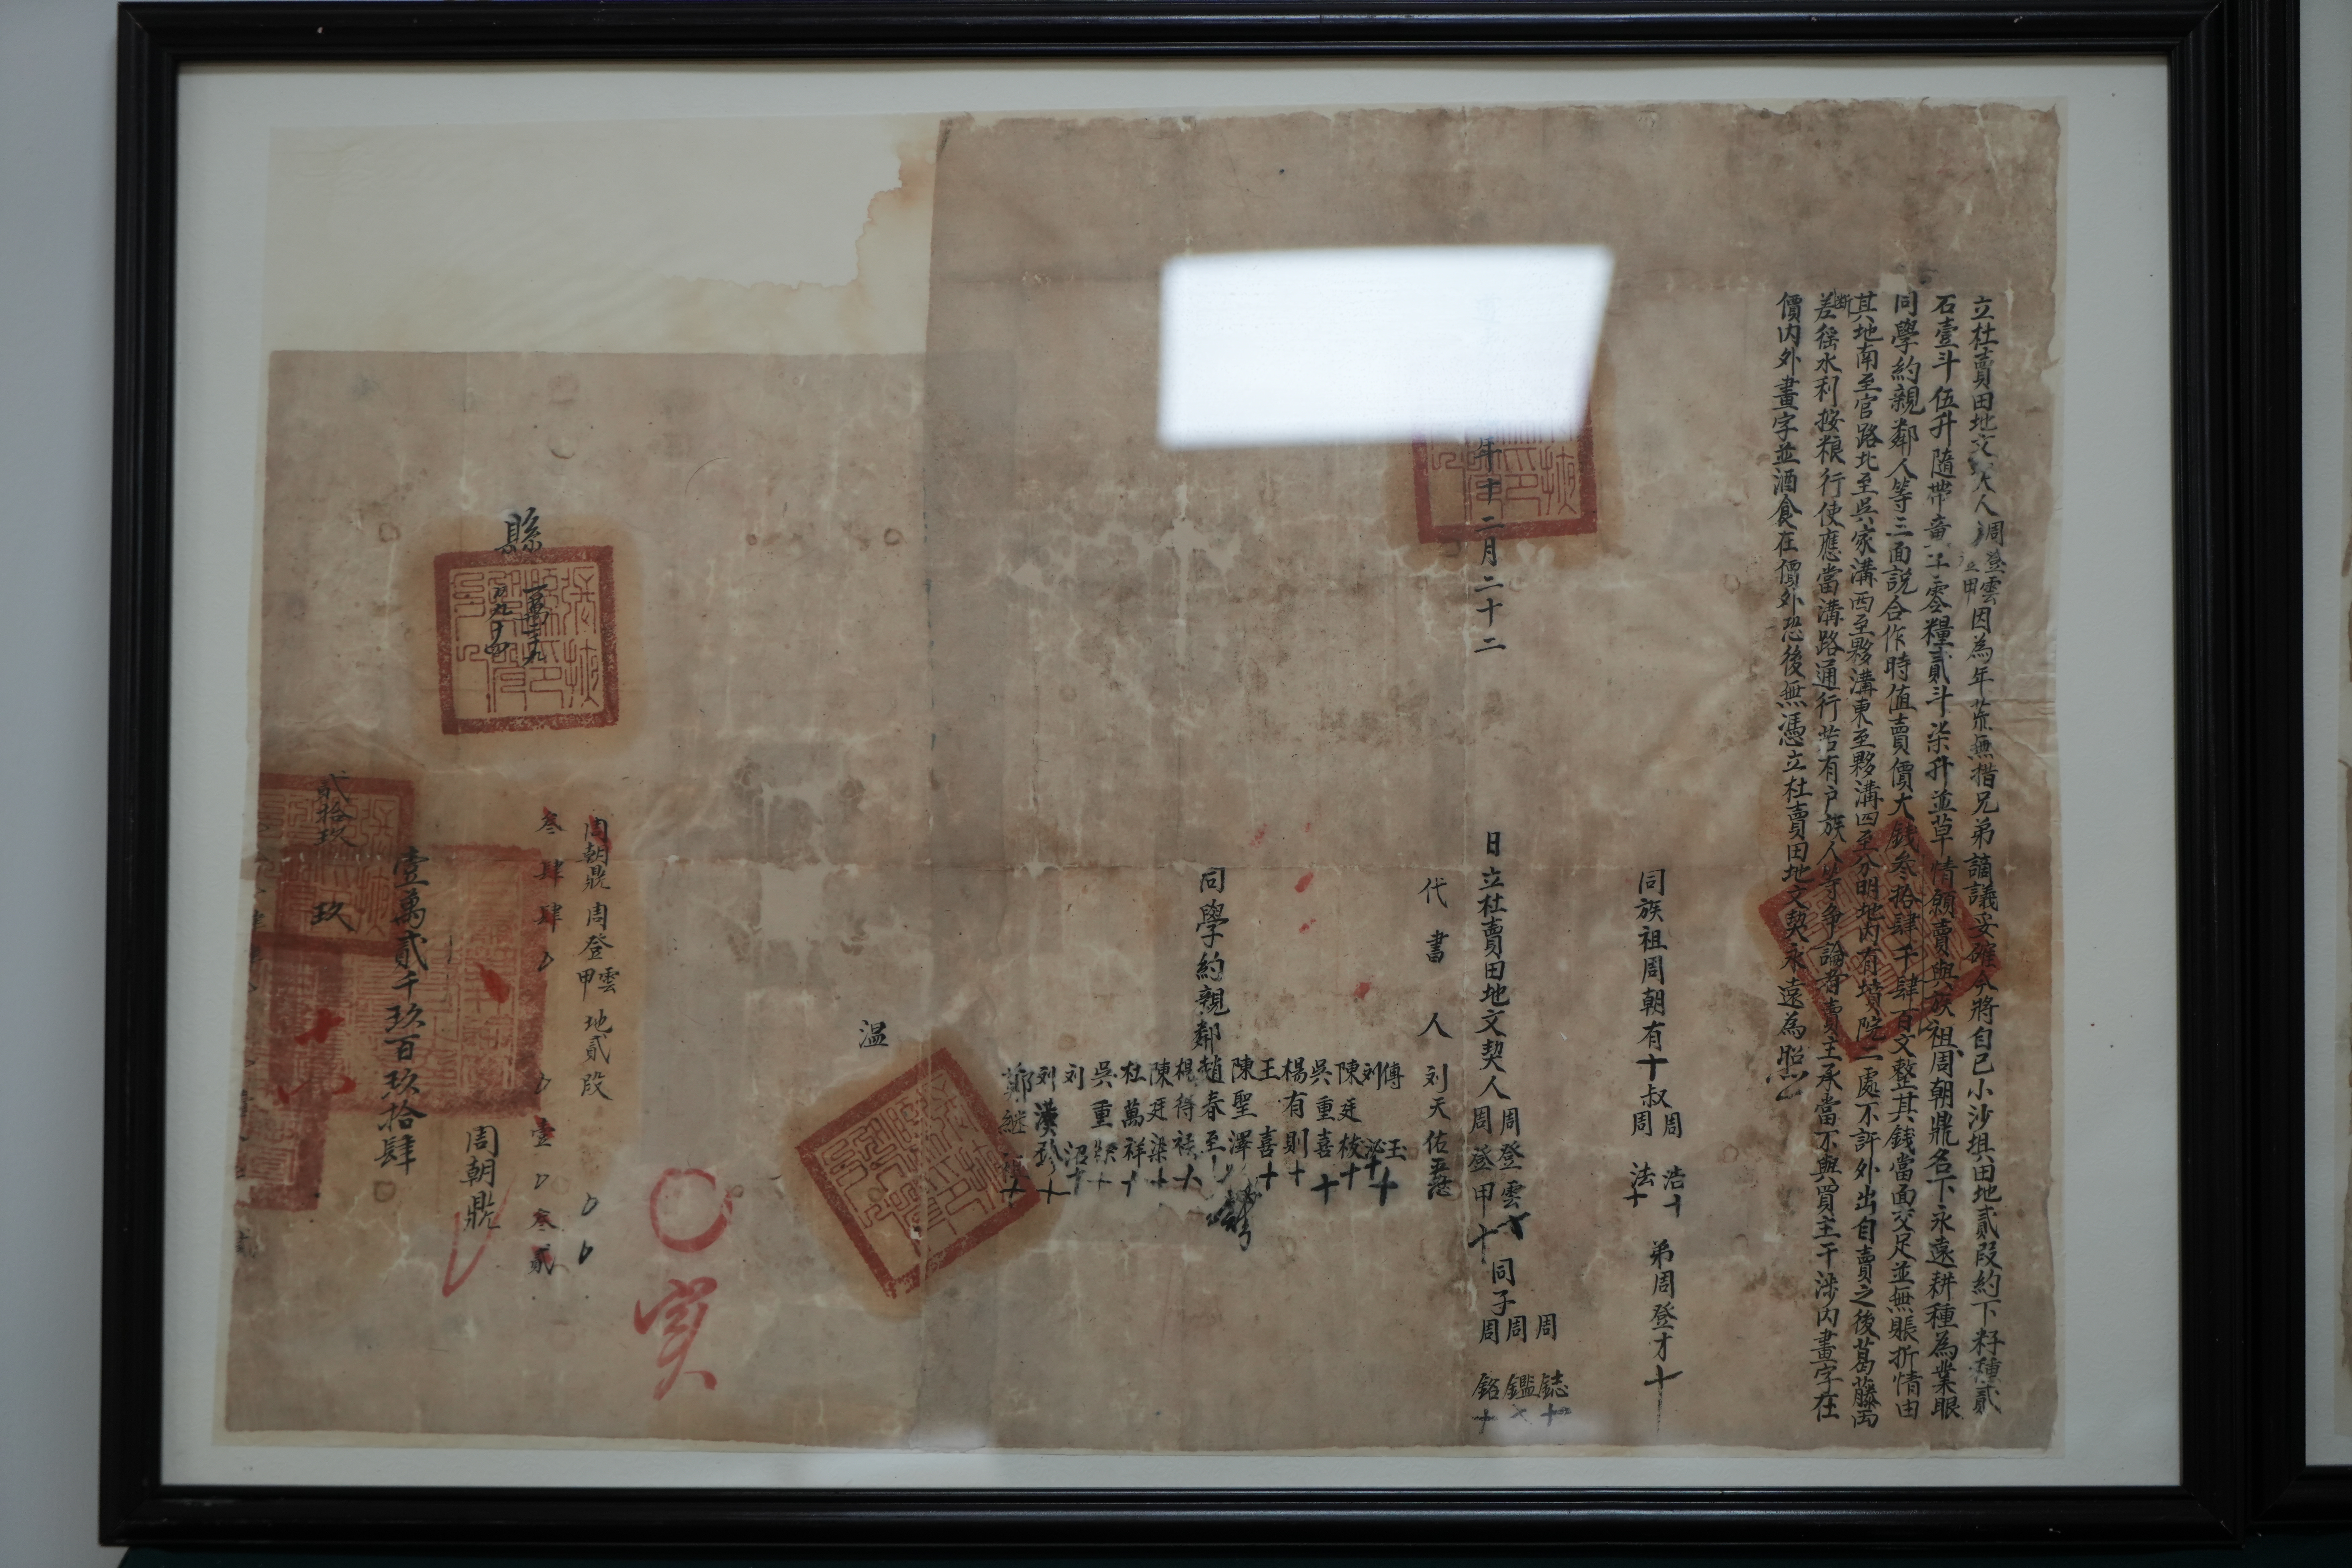 立杜賣田地文契人周登雲甲因為年荒無措兄弟謫議妥確今將自己小沙埧田地貳段約下籽種貳
石壹斗伍升隨帶 零糧貳斗柒升並草情願賣與族祖周朝鼎名下永遠耕種為業眼
同學約親鄰人等三面說合作時值賣價大錢叁拾肆千肆百文整其錢當面交足並無賬折情由
其地南至官路北至吳家溝西至夥溝東至夥溝四至分明地內有墳院二處不許外出自賣之後葛藤両
斷差徭水利按粮行使應當溝路通行若有户族人等争論者賣主承當不與買主干涉內畫字在
價內外畫字並酒食在價外恐後無憑立杜賣田地文契永遠為照
同族祖周朝有十叔周浩十周法十 弟周登才十
年十二月二十二
日立杜賣田地文契人周登雲十周登甲十同子周鋕十周鑑十周銘十
代書人刘天佑
同學約親鄰
傅玉十
刘泌十
陳廷枝十
吳重喜十
楊有則十
王喜十
陳聖澤
趙春至
楊得 十
陳廷梁十
杜萬祥十
吳重 十
刘沼十
刘漢珍十
鄭繼 十
温
縣
周朝鼎 周登雲甲 地貳段
叁肆肆 壹 叁貳
周朝鼎
壹萬貳千玖百玖拾肆
貳拾玖 玖
实